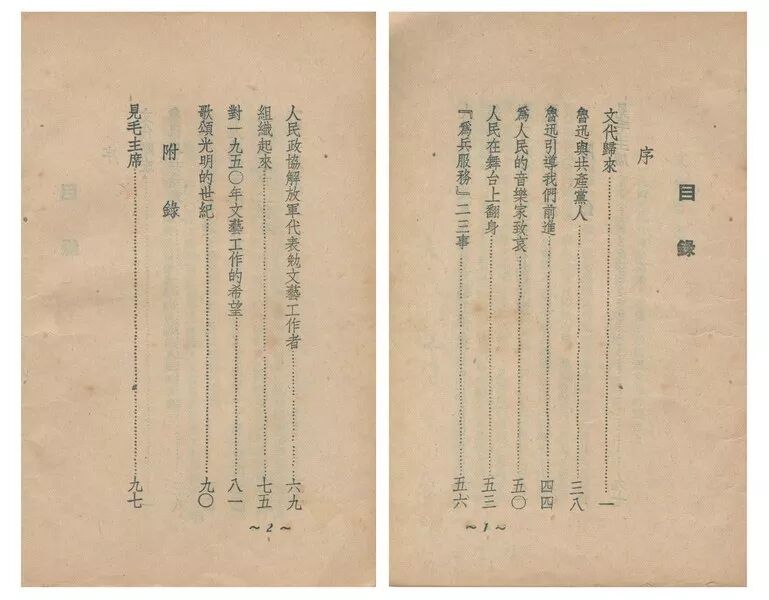 目錄
序
文代歸來……一
魯迅與共產黨人……三八
魯迅引導我們前進……四四
爲人民的音樂家致哀……五〇
人民在舞台上翻身……五三
『爲兵服務』二三事……五六
~1~
人民政協解放軍代表勉文藝工作者……六九
組織起來……七五
對一九五〇年文藝工作的希望……八一
歌頌光明的世紀……九〇
附錄
見毛主席……九七
~2~